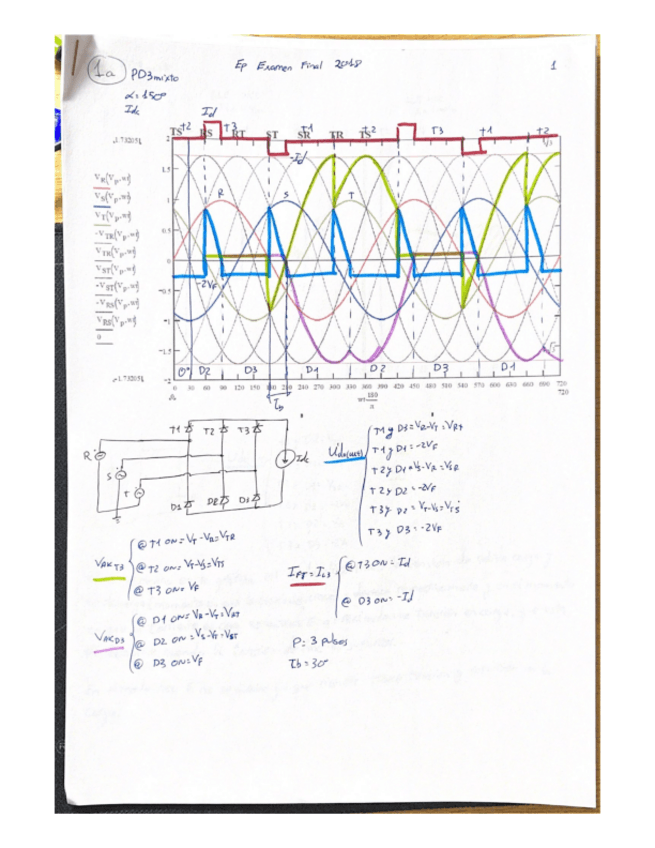 1a
PD3 mixto
α=150º
Idc
Ep Examen Final 2018
1
Id
-Id
TS RS RT ST SR TR TS
t2 T3 T1 T2 T3 t1 t2
1.732051
V_R(V_p,wt)
V_S(V_p,wt)
V_T(V_p,wt)
-V_TR(V_p,wt)
V_TR(V_p,wt)
V_ST(V_p,wt)
-V_ST(V_p,wt)
-V_RS(V_p,wt)
V_RS(V_p,wt)
0
-1.732051
2
1.5
1
0.5
0
-0.5
-1
-1.5
-2
R S T
-2VF
0º D2 D3 D1 D2 D3 D1
0 30 60 90 120 150 180 210 240 270 300 330 360 390 420 450 480 510 540 570 600 630 660 690 720
720
wt·180/π
τb
T1 T2 T3
R
S
T
D1 D2 D3
Idc
Udα(wt)
T1 y D3 = VR-VT = VRT
T1 y D1 = -2VF
T2 y D1 = VS-VR = VSR
T2 y D2 = -2VF
T3 y D2 = VT-VS = VTS
T3 y D3 = -2VF
VAK T3
@ T1 ON = VT-VR = VTR
@ T2 ON = VT-VS = VTS
@ T3 ON = VF
VAK D3
@ D1 ON = VR-VT = VRT
@ D2 ON = VS-VT = VST
@ D3 ON = VF
@ T3 ON = Id
@ D3 ON = -Id
P: 3 pulsos
τb = 30º